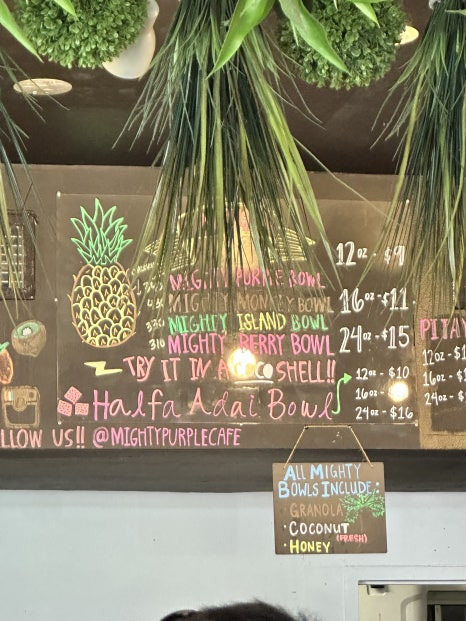 12oz - $9
MIGHTY PURPLE BOWL
MIGHTY MONKEY BOWL
16oz - $11
330 MIGHTY ISLAND BOWL
310 MIGHTY BERRY BOWL
24oz - $15
TRY IT IN A COCO SHELL!!
12oz - $10
Halfa Adai Bowl
24oz - $16
LLOW US!! @MIGHTYPURPLECAFE
PITAY
12oz - $1
16oz - $
24oz - $
ALL MIGHTY
BOWLS INCLUDE:
· GRANOLA
· COCONUT
(FRESH)
· HONEY